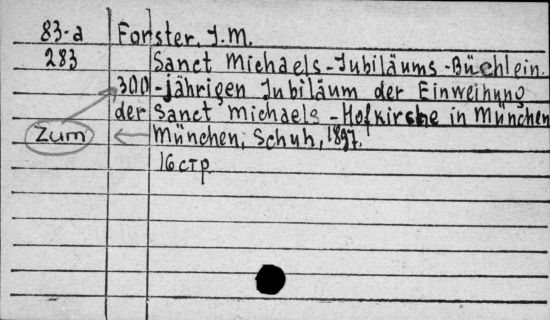 83-a Forster, J.M.
283 Sanct Michaels-Jubiläums-Büchlein.
300-jährigen Jubiläum der Einweihung
der Sanct Michaels-Hofkirche in München
Zum München, Schuh, 1897.
16 стр